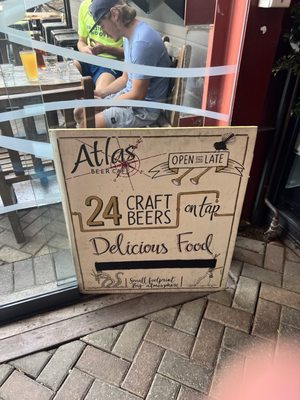 Atlas
BEER CAFE
OPEN 'TIL LATE
24 CRAFT BEERS on tap
Delicious Food
Small footprint
Big atmosphere